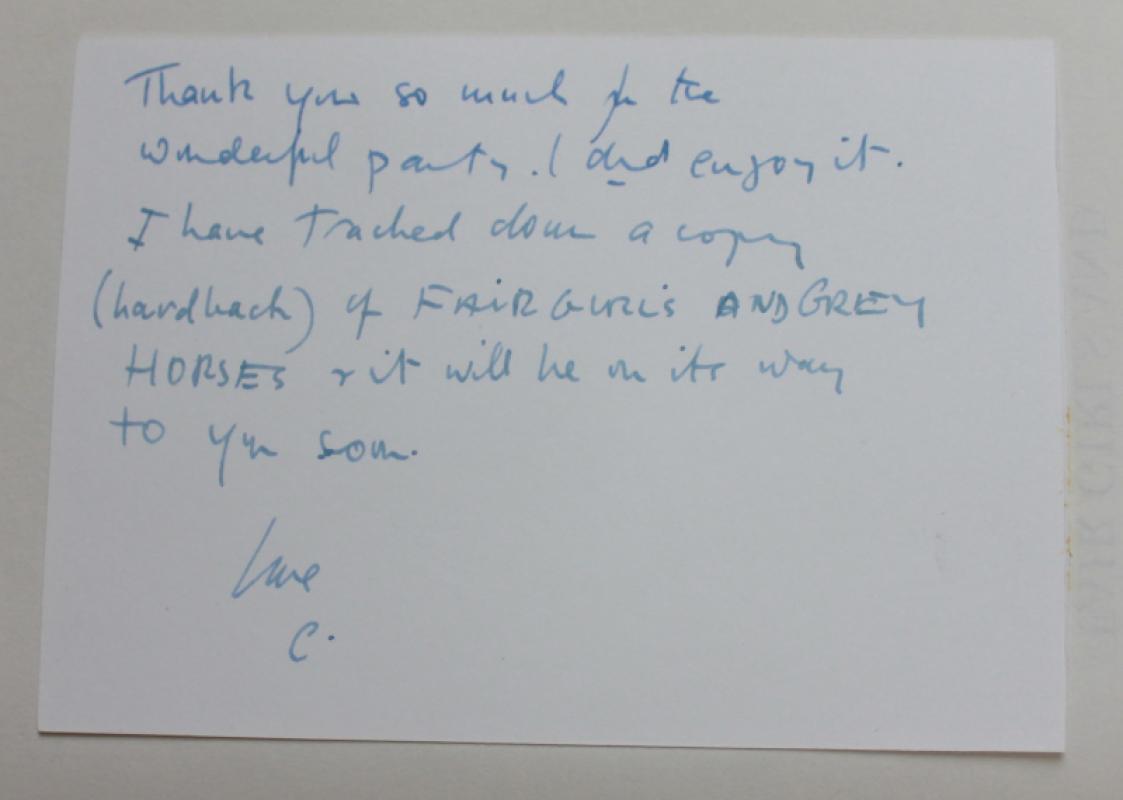 Thank you so much for the
wonderful party. I did enjoy it.
I have tracked down a copy
(hardback) of FAIR GIRLS AND GREY
HORSES & it will be on its way
to you soon.
Love
C.